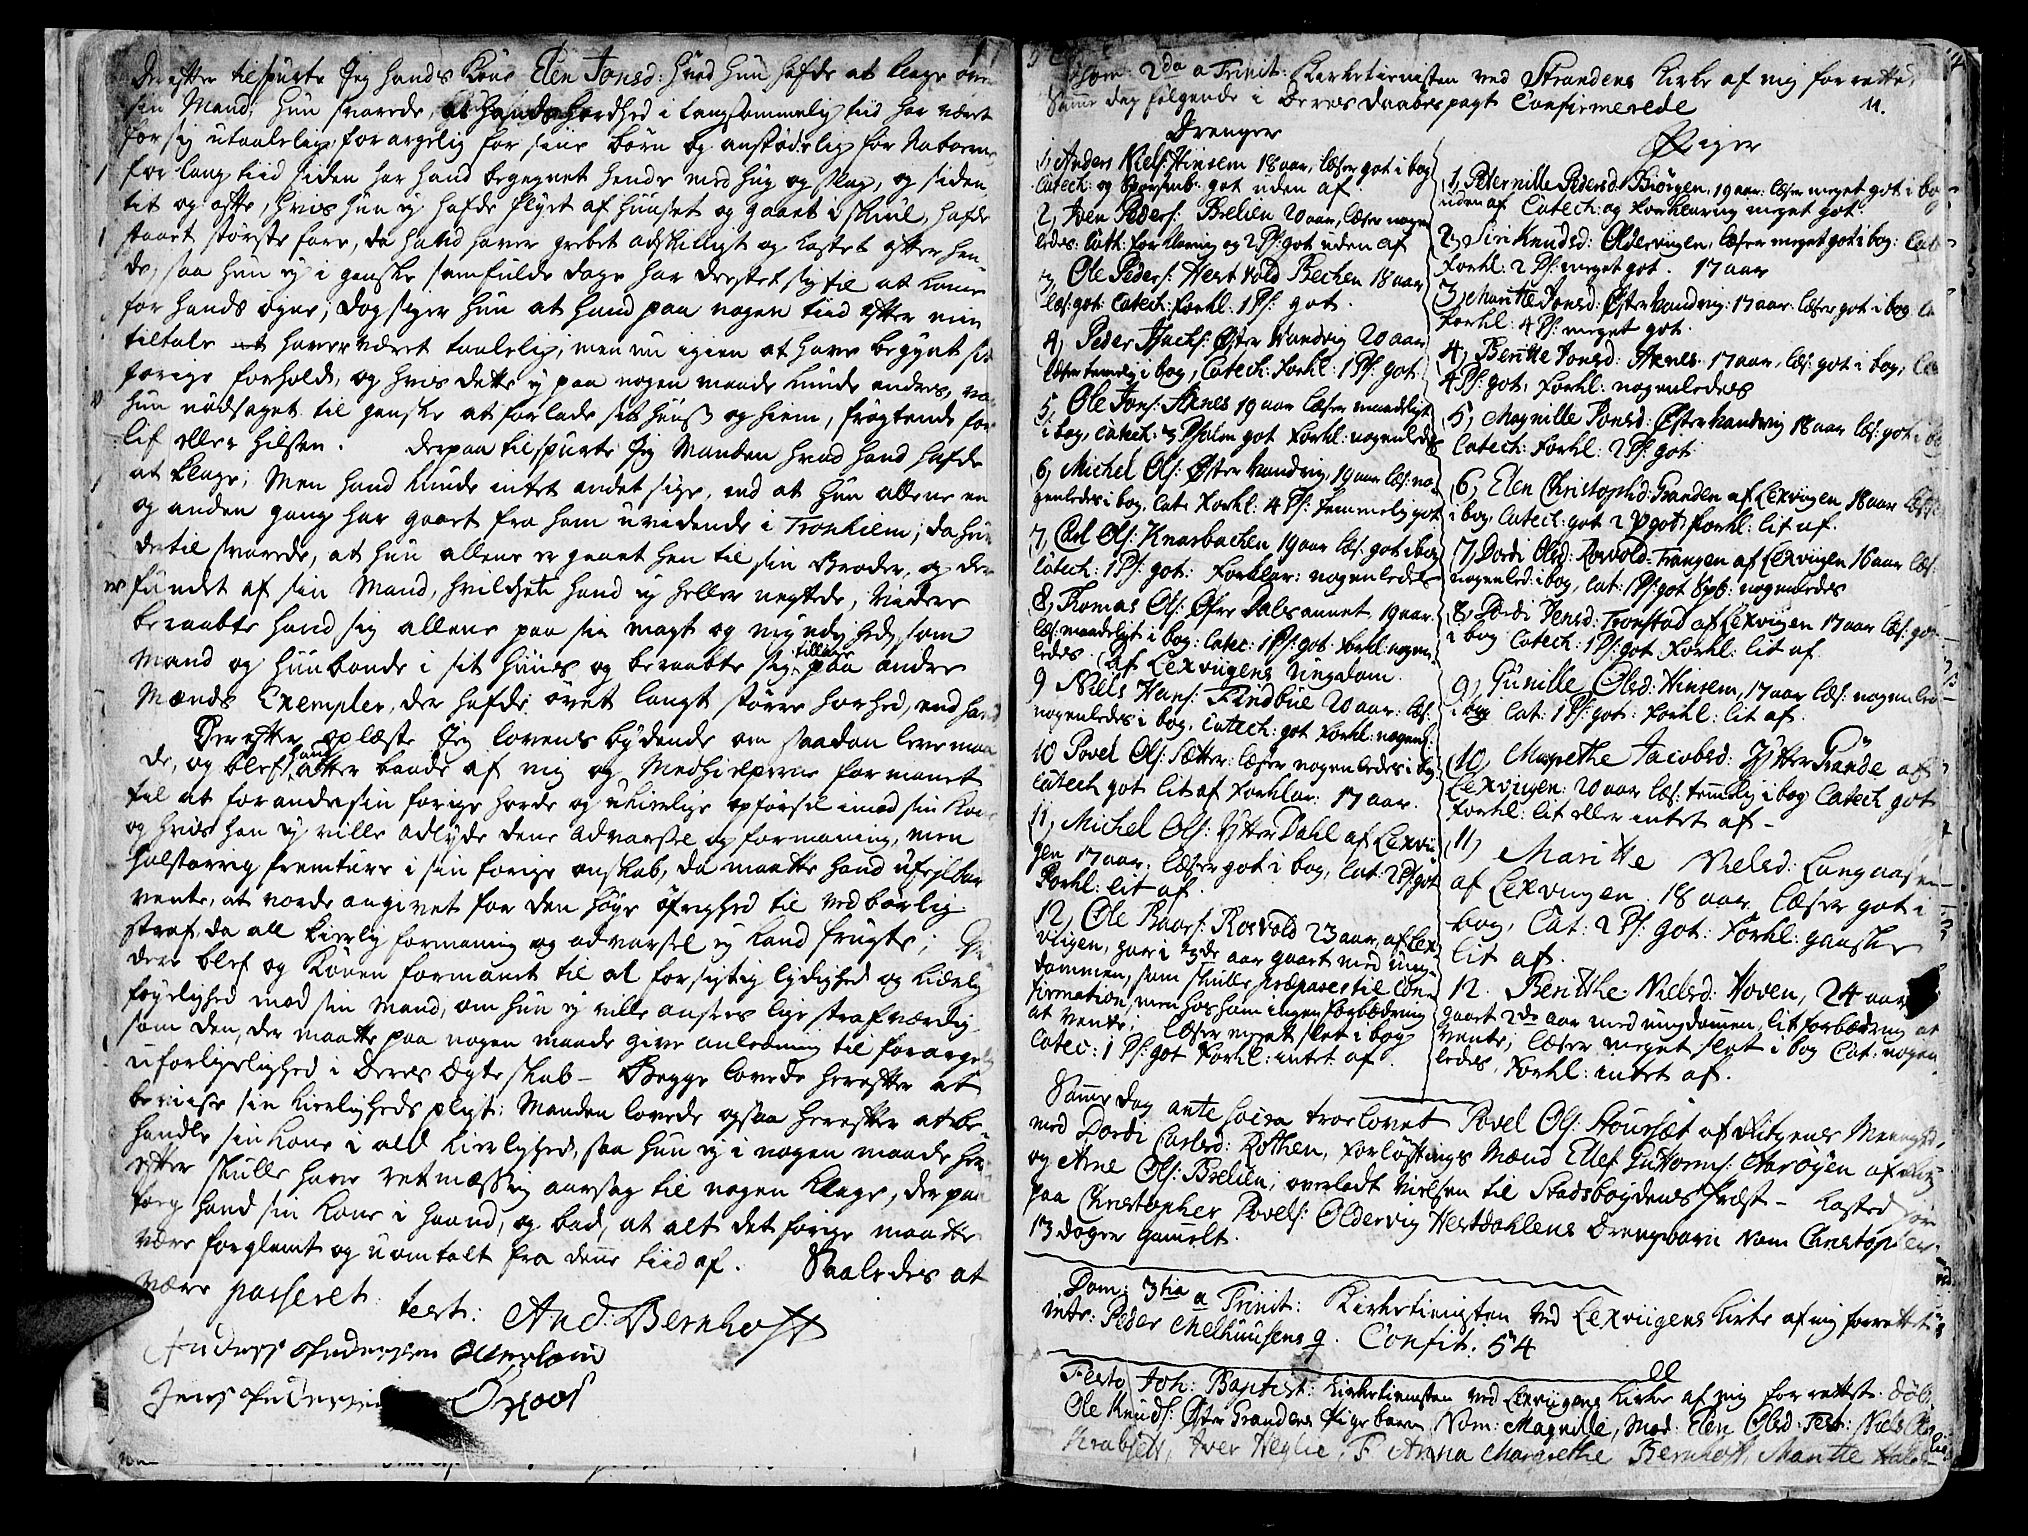 Derefter tilspurte Jeg hands Kone Elen Jonsd: hvad hun hafde at klage over
sin Mand; hun svarede, at hands haardhed i langsommelig tiid har været
for sig utaalelig, forargelig for siine børn og anstødelig for Naboerne
for lang tiid siden har hand begegnet hende med hug og slag, og siden
tit og ofte, hvis hun ej hafde flyet af huuset og gaaet i skiul, hafde
staaet største fare, da hand haver grebet adskilligt og kastet efter hen-
de, saa hun ej i ganske samfulde dage har drestet sig til at kome
for hands øyne; dog siger hun at hand paa nogen tiid efter min
tiltale haver været taalelig, men nu igien at have begynt sit
forige forhold, og hvis dette ej paa nogen maade kunde endres, var
hun nødsaget til ganske at forlade sit huus og hiem, frøgtende for
lif eller hilsen. Derpaa tilspurte Jeg Manden hvad hand hafde
at klage; Men hand kunde intet andet sige, end at hun allene en
og anden gang har gaaet fra ham uvidende i Tronhiem; da hun
dertil svarede, at hun allene er gaaet hen til sin Broder, og der
fundet af sin Mand, hvilchet hand ej heller negtede, Videre
beraabte hand sig allene paa sin magt og myndighed som
Mand og Huusbonde i sit huus og beraabte sig tillige paa andre
Mænds Exempler, der hafde øvet langt større haarhed, end hand
Derefter oplæste Jeg lovens bydende om saadan levemaa-
de, og blef hand atter baade af mig og Medhielperne formanet
til at forandre sin forige horde og ukierlige opførsel imod sin Kone
og hvis han ej ville adlyde dene advarsel og formaning, men
halstarrig fremture i sin forige ondskab, da maatte hand ufeilbar
vente, at vorde angivet for den høye øfrighed til vedbørlig
straf, da all kierlig formaning og advarsel ej kand frugte;
dere blef og Konen formanet til al forsigtig lydighed og lidelig
føyelighed mod sin Mand, om hun ej ville ansees lige strafværdig
som den, der maatte paa nogen maade give anledning til forargelig
uforligelighed i Deres Ægteskab - Begge lovede herefter at
beviise sin kierligheds pligt: Manden lovede ogsaa herefter at be-
handle sin Kone i all kierlighed, saa hun ej i nogen maade her-
efter skulle have retmæssig aarsag til nogen klage, derpaa
tog hand sin Kone i haand, og bad, at alt det forige maatte
være forglemt og uomtalt fra dene tiid af. Saaledes at
være passeret. test: And: Bernhoft
Anders Pedersen
Jens Pedersen
Dom: 2da a Trinit: Kirketienisten ved Strandens Kirke af mig forrettet,
Same dag følgende i deres daabes pagt Confirmerede 11.
Drenger
1, Anders Niels: Hinsem 18 aar, læser got i bog
Catech: og Spørsmb: got uden af
2, Iven Peders: Brelien 20 aar, læser nogen
ledes: Cath: forklaring og 2 Ps: got uden af
3, Ole Peders: Herstvold Bechen 18 aar
læs: got: Catech: Forkl: 1 Ps: got.
4, Peder Isachs: Øster Vandvig 20 aar
læser temelig i bog, Catech: Forkl: 1 Ps: got
5, Ole Jons: Aknes 19 aar læser maadeligt
i bog, Catech: 3 Psalm got Forkl: nogenledes
6, Michel Ols: Øster Vandvig, 19 aar læs: no-
genledes i bog, Cate Forkl: 4 Ps: temmelig got
7, Carl Ols: Knarbachen 19 aar læs: got i bog
Catech: 1 Ps: got: Forklar: nogenledes
8, Thomas Ols: Øfre Dalsaunet 19 aar
læs: maadeligt i bog: Catec: 1 Ps: got Forkl. nogen-
ledes. (Af Lexvigens Ungdom.
9 Niels Hans: Findbue 20 aar: læs:
nogenledes i bog, Catech: got Forkl: nogenl:
10 Povel Ols: Sætter: læser nogenledes i bog
Catech got lit af Forklar: 17 aar.
11, Michel Ols: Ytter Dahl af Lexvi-
gen 17 aar, læser got i bog, Cat: 2 Ps: got
Forkl: lit af.
12, Ole Baars: Rosvold 23 aar, af Lex-
viigen, har i 3de aar gaaet med ung-
dommen, som skulle præpareres til Con-
firmation, men hos ham ingen forbædring
at vente; læser meget slet i bog
Catec: 1 Ps: got Forkl: intet af.
Piger
1, Peternille Pedersd: Biørgen, 19 aar: læser meget got i bog
uden af Catech: og Forklaring meget got.
2, Siri Knudsd: Oldervigen: læser meget got i bog: Cate
Forkl: 2 Ps: meget got. 17 aar
3, Maritte Jonsd: Øster Vandvig: 17 aar: læser got i bog Ca
Forkl: 4 Ps: meget got.
4, Beritte Jonsd: Aknes 17 aar, læs: got i bog, Ca
4 Ps: got, Forkl: nogenledes
5, Magnille Jonsd: Øster Vandvig 18 aar læs: got i bog
Catech: Forkl: 2 Ps: got
6, Elen Christophd: Granden af Lexviigen 18 aar læser
i bog, Catech: got 2 Ps got, Forkl: lit af.
7, Dordi Olsd: Rosvold-Trangen af Lexviigen 16 aar læs:
nogenled: i bog, Cat: 1 Ps: got Spb: nogenledes
8, Dordi Jensd: Tronstad af Lexviigen 17 aar læs: got
i bog Catech: 1 Ps: got Forkl: lit af
9, Gunille Olsd: Hinsem, 17 aar læs: nogenled
i bog Cat: 1 Ps: got: Forkl: lit af.
10, Margrethe Jacobsd: Ytter Grande af
Lexviigen: 20 aar læs: temelig i bog Catech got
Forkl: lit eller intet af -
11, Maritte Nielsd: Langaasen
af Lexviigen, 18 aar læser got i
bog, Cat: 2 Ps: got: Forkl: ganske
lit af.
12. Beritthe Nielsd: Hoven, 24 aar
gaaet 2de aar med ungdomen, lit forbædring at
vente; læser meget slet i bog Cat: nogen
ledes, Forkl: intet af.
Same dag ante sacra troelovet Povel Ols: Stoursæt af Ritzens Menighed,
med Dordi Carlsd: Rothen, Forløftnings Mænd Ellef Guttorms: Aarøyen af Ritz
og Arne Ols: Brelien; overladt vielsen til Stadsbøydens Præst - Kasted jor
paa Christopher Povels: Oldervig Herstdahlens Drengbarn Nom Christopher
13 dager gamelt.
Dom: 3tia a Trinit: Kirketienisten ved Lexviigens Kirke af mig forrettet
intr: Peder Melhuusens q. Confit: 54
Festo Joh: Baptist: Kirketienisten ved Lexviigens Kirke af mig forrettet. døb:
Ole Knuds: Øster Grandens Pigebarn, Nom: Magnille, Mod: Elen Olsd: Test: Niels
Krabset, Iver Heglie, F. Anna Margrethe Bernhoft, Maritte